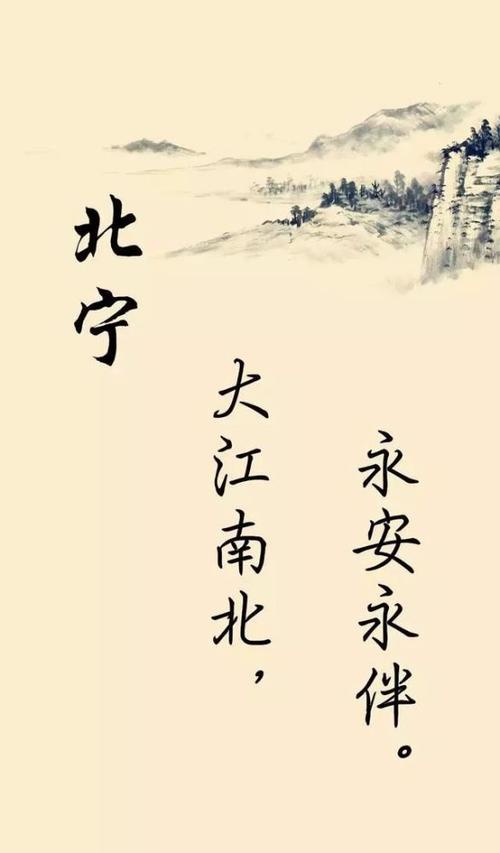 北宁
大江南北，
永安永伴。